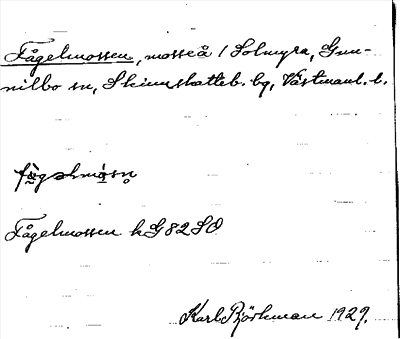 Fågelmossen, mosse å 1 Solmyra, Gun-
nilbo sn, Skinnskatteb. bg, Västmanl. l.
Fågelmossen k G 82 SO
Karl Björkman 1929.